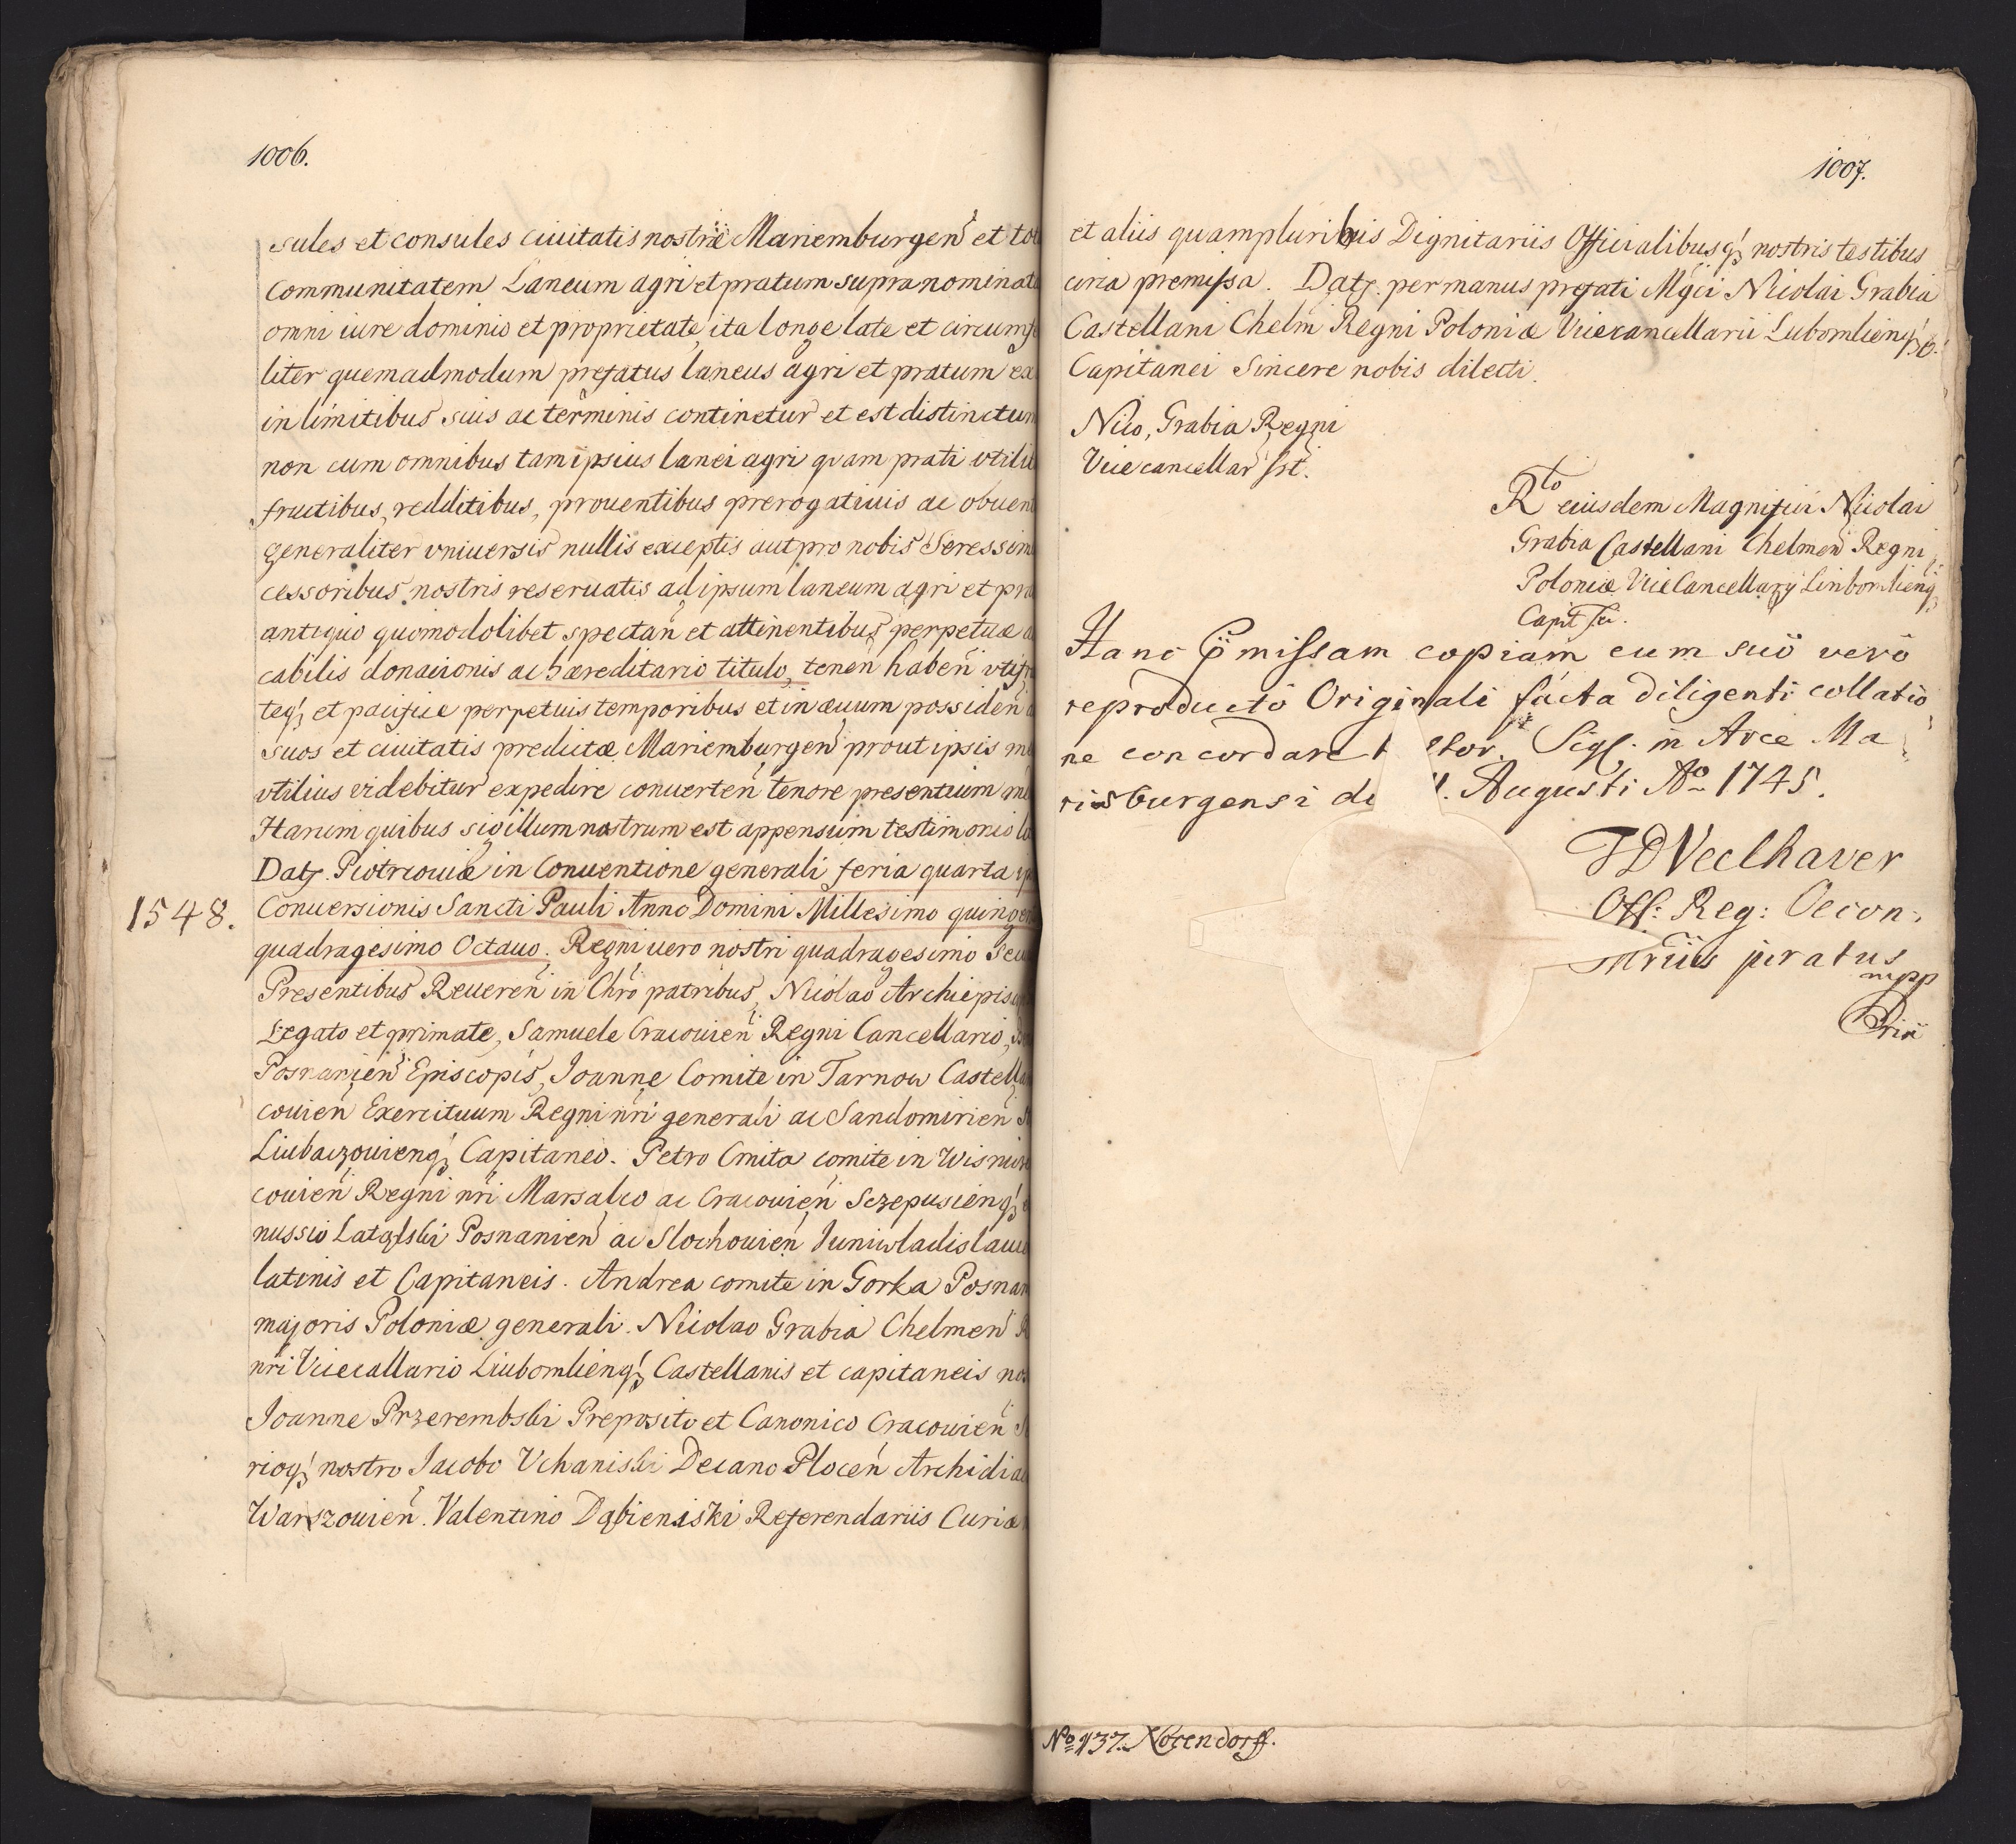 1006.
sules et consules ciuitatis nostræ Mariemburgen et tot
communitatem Laneum agri et pratum supranominat
omni iure dominio et proprietate, ita longe late et circumf
liter quemadmodum prefatus laneus agri et pratum ex
in limitibus suis ac terminis continetur et est distinctum
non cum omnibus tam ipsius lanei agri quam prati vtili
fructibus, redditibus, prouentibus prerogatiuis ac obuent
generaliter vniuersis nullis exceptis aut pro nobis Seressim
cessoribus nostris reseruatis ad ipsum laneum agri et pra
antiquo quomodolibet spectan et attinentibus, perpetuæ
cabilis donacionis ac hæreditario titulo, tenen haben vtif
teq; et pacifice perpetuis temporibus et in æuum possiden
suos et ciuitatis predictæ Mariemburgen prout ipsis me
vtilius videbitur expedire conuerten tenore presentium me
Harum quibus sigillum nostrum est appensum testimonio l
Datz. Piotrcouiæ in Conuentione generali feria quarta ip
1548.
Conuersionis Sancti Pauli Anno Domini Millesimo quingen
quadragesimo Octauo. Regni uero nostri quadragesimo Secu
Presentibus Reueren in Chro patribus, Nicolao Archiepisc
Legato et primate, Samuele Cracouien Regni Cancellario,
Posnanien Episcopis, Joanne Comite in Tarnow Castella
couien Exercituum Regni nri generali ac Sandomirien
Liubaczouienq; Capitaneo. Petro Cmita comite in Wisnic
couien Regni nri Marsalco ac Cracouien Sczepusienq;
nussio Latalski Posnanien ac Slochouien Juniwladislauie
latinis et Capitaneis. Andrea comite in Gorka Posnan
majoris Poloniæ generali. Nicolao Grabia Chelmen R
nri Vicecallario Liubomlienq; Castellanis et capitaneis nos
Joanne Przerembski Preposito et Canonico Cracouien S
rioq; nostro Jacobo Vchaniski Decano Plocen Archidia
Warszouien. Valentino Dąbieniski Referendariis Curiæ
1007.
et aliis quampluribus Dignitariis Officialibusq; nostris testibus
circa premissa. Datz. per manus prefati Mgci Nicolai Grabia
Castellani Chelm Regni Poloniæ Vicecancellarii Lubomlienq;
Capitanei Sincere nobis dilecti.
Nico, Grabia Regni
Vicecancellar sst.
Rto eiusdem Magnifici Nicolai
Grabia Castellani Chelmen Regni
Poloniæ ViceCancellary Linbomlienq;
Capit
Hanc missam copiam cum suo vero
reproducto Originali facta diligenti collatio
ne concordare Sigl. in Arce Ma
riæburgensi Augusti Ao 1745.
Veelhaver
Off: Reg: Oecon:
juratus
mpp
No 137. Notendorff.